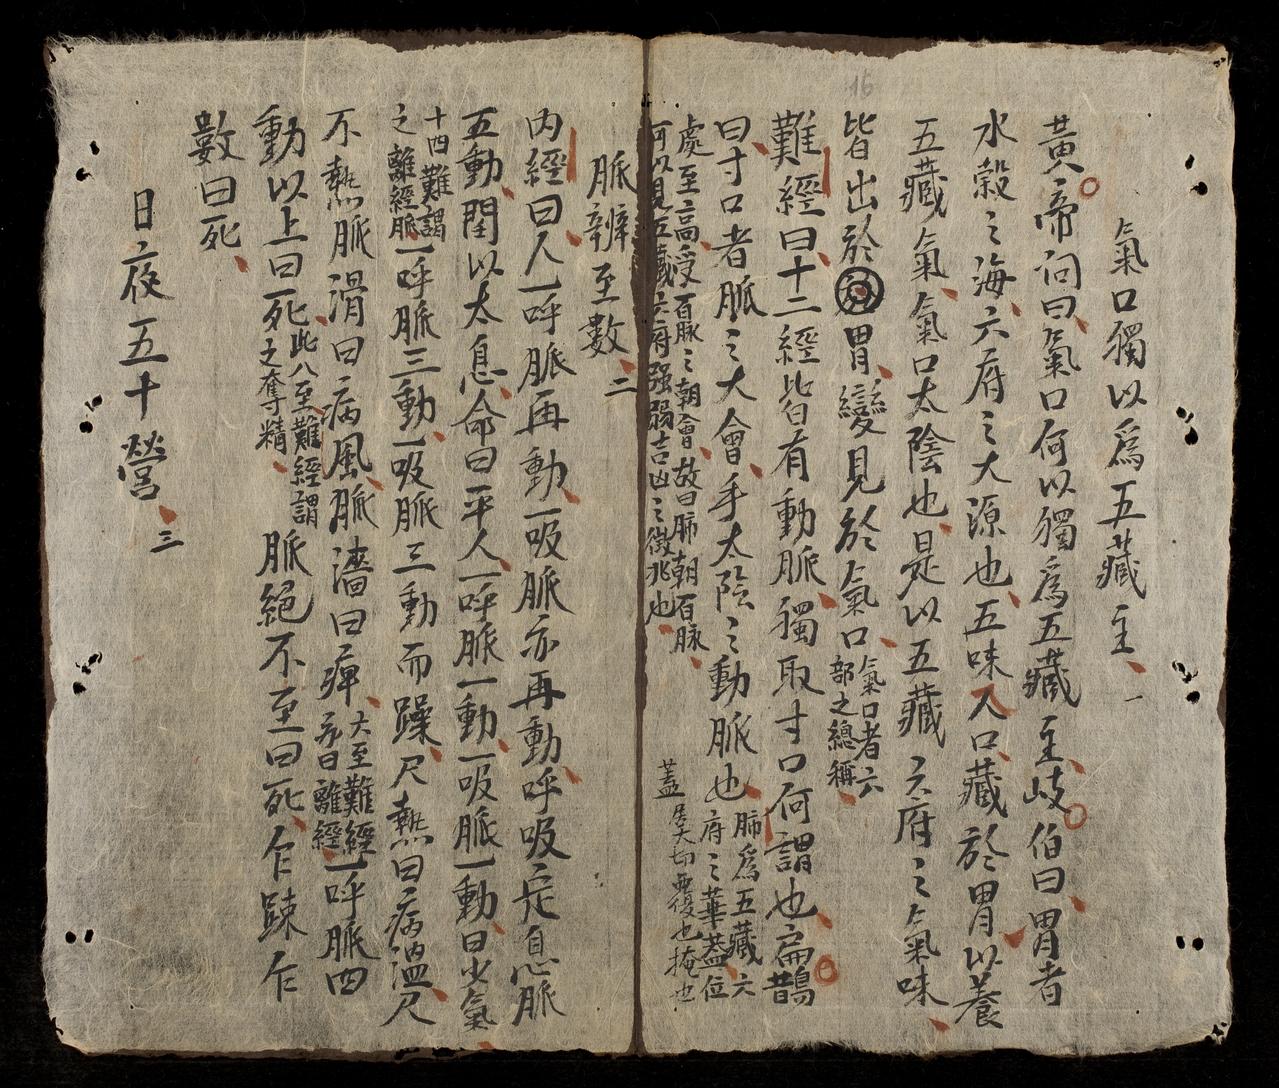 氣口獨以爲五藏主一
黃帝問曰氣口何以獨爲五藏主岐伯曰胃者
水穀之海六府之大源也五味入口藏於胃以養
五藏氣氣口太陰也是以五藏六府之氣味
皆出於胃變見於氣口氣口者六
部之總稱
難經曰十二經皆有動脈獨取寸口何謂也扁鵲
曰寸口者脈之大會手太陰之動脈也肺爲五藏六
府之華蓋位
處至高受百脉之朝會故曰肺朝百脉
可以見五藏六府强弱吉凶之徵兆也
蓋居大切覆也掩也
脈辨至數二
内經曰人一呼脈再動一吸脈亦再動呼吸定息脈
五動閏以太息命曰平人一呼脈一動一吸脈一動曰少氣
十四難謂
之離經脈一呼脈三動一吸脈三動而躁尺熱曰病溫尺
不熱脈滑曰病風脈濇曰痺大至難經
亦曰離經一呼脈四
動以上曰死此八至難經謂
之奪精脈絕不至曰死乍踈乍
數曰死
日夜五十營三
16